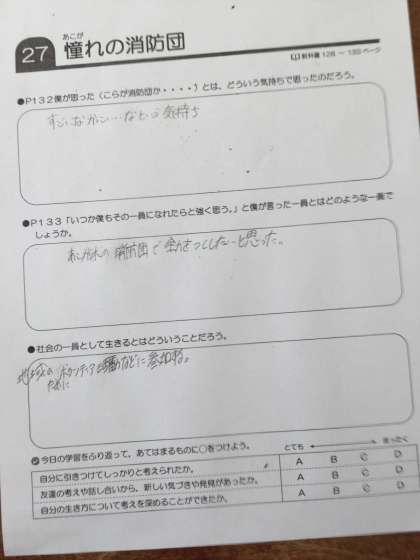 あこが
27 憧れの消防団
教科書 128 ～ 133ページ
●P132僕が思った（これが消防団か・・・・）とは、どういう気持ちで思ったのだろう。
すごいなかっこ…などの気持ち
●P133「いつか僕もその一員になれたらと強く思う。」と僕が言った一員とはどのような一員で
しょうか。
の消防団で
と思った。
●社会の一員として生きるとはどういうことだろう。
地域の ボランティア活動などに参加する。
ために
今日の学習をふり返って、あてはまるものに○をつけよう。 とても まったく
自分に引きつけてしっかりと考えられたか。 A B C D
友達の考えや話し合いから、新しい気づきや発見があったか。 A B C D
自分の生き方について考えを深めることができたか。 A B C D